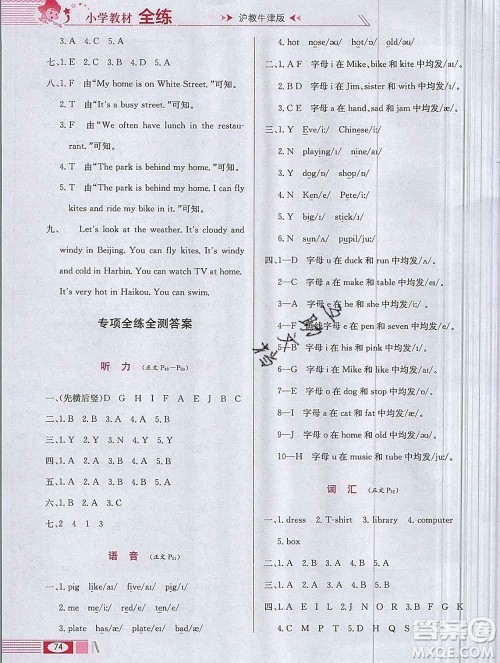 小学教材 全练
沪教牛津版
3. A 4. A 5. A
七、1. E 2. C 3. A 4. D 5. B
八、1. F 由“My home is on White Street.”可知。
2. T 由“It's a busy street.”可知。
3. F 由“We often have lunch in the restau-
rant.”可知。
4. T 由“The park is behind my home. I can fly
kites and ride my bike in it.”可知。
5. T 由“The park is behind my home.”可知。
九、 Let's look at the weather. It's cloudy and
windy in Beijing. You can fly kites. It's windy and
cold in Harbin. You can watch TV at home.
It's very hot in Haikou. You can swim.
专项全练全测答案
听 力
一、(先横后竖)D G H I F A E J B C
二、1. B 2. A 3. A 4. A 5. B
三、1. A 2. B 3. A 4. B 5. A
四、1. A 2. B 3. A 4. B 5. B
五、1. A 2. B 3. A 4. B 5. A
六、1. B 2. A 3. B 4. B 5. C
七、2 4 1 3
语 音
一、1. pig like/aɪ/ five/aɪ/ pig/ɪ/
2. me desk/e/ he/iː/ hen/e/
3. plate have/æ/ late/eɪ/ hand/æ/
74
4. hot nose/əʊ/ hot/ɒ/ home/əʊ/
二、1. A F 字母 i 在 Mike, bike 和 kite 中均发/aɪ/。
2. B E 字母 i 在 Jim, sister 和 with 中均发/ɪ/。
3. C D 字母 a 在 hand, sad 和 jam 中均发/æ/。
三、1. Y Eve/iː/ Chinese/iː/
2. N playing/ɪ/ write/aɪ/
3. N shop/ɒ/ nose/əʊ/
4. N Ken/e/ Pete/iː/
5. Y big/ɪ/ this/ɪ/
6. N run/ʌ/ pupil/juː/
四、1—D 字母 u 在 duck 和 run 中均发/ʌ/。
2—C 字母 a 在 make 和 game 中均发/eɪ/。
3—A 字母 e 在 he 和 she 中均发/iː/。
5—B 字母 i 在 his 和 pink 中均发/ɪ/。
6—E 字母 o 在 dog 和 stop 中均发/ɒ/。
8—I 字母 a 在 cat 和 fat 中均发/æ/。
9—J 字母 o 在 home 和 old 中均发/əʊ/。
10—H 字母 u 在 music 和 tube 中均发/juː/。
词 汇
一、1. dress 2. T-shirt 3. library 4. computer
5. box
二、1. A 2. B 3. A 4. A 5. B
答案圈
MXQE.COM